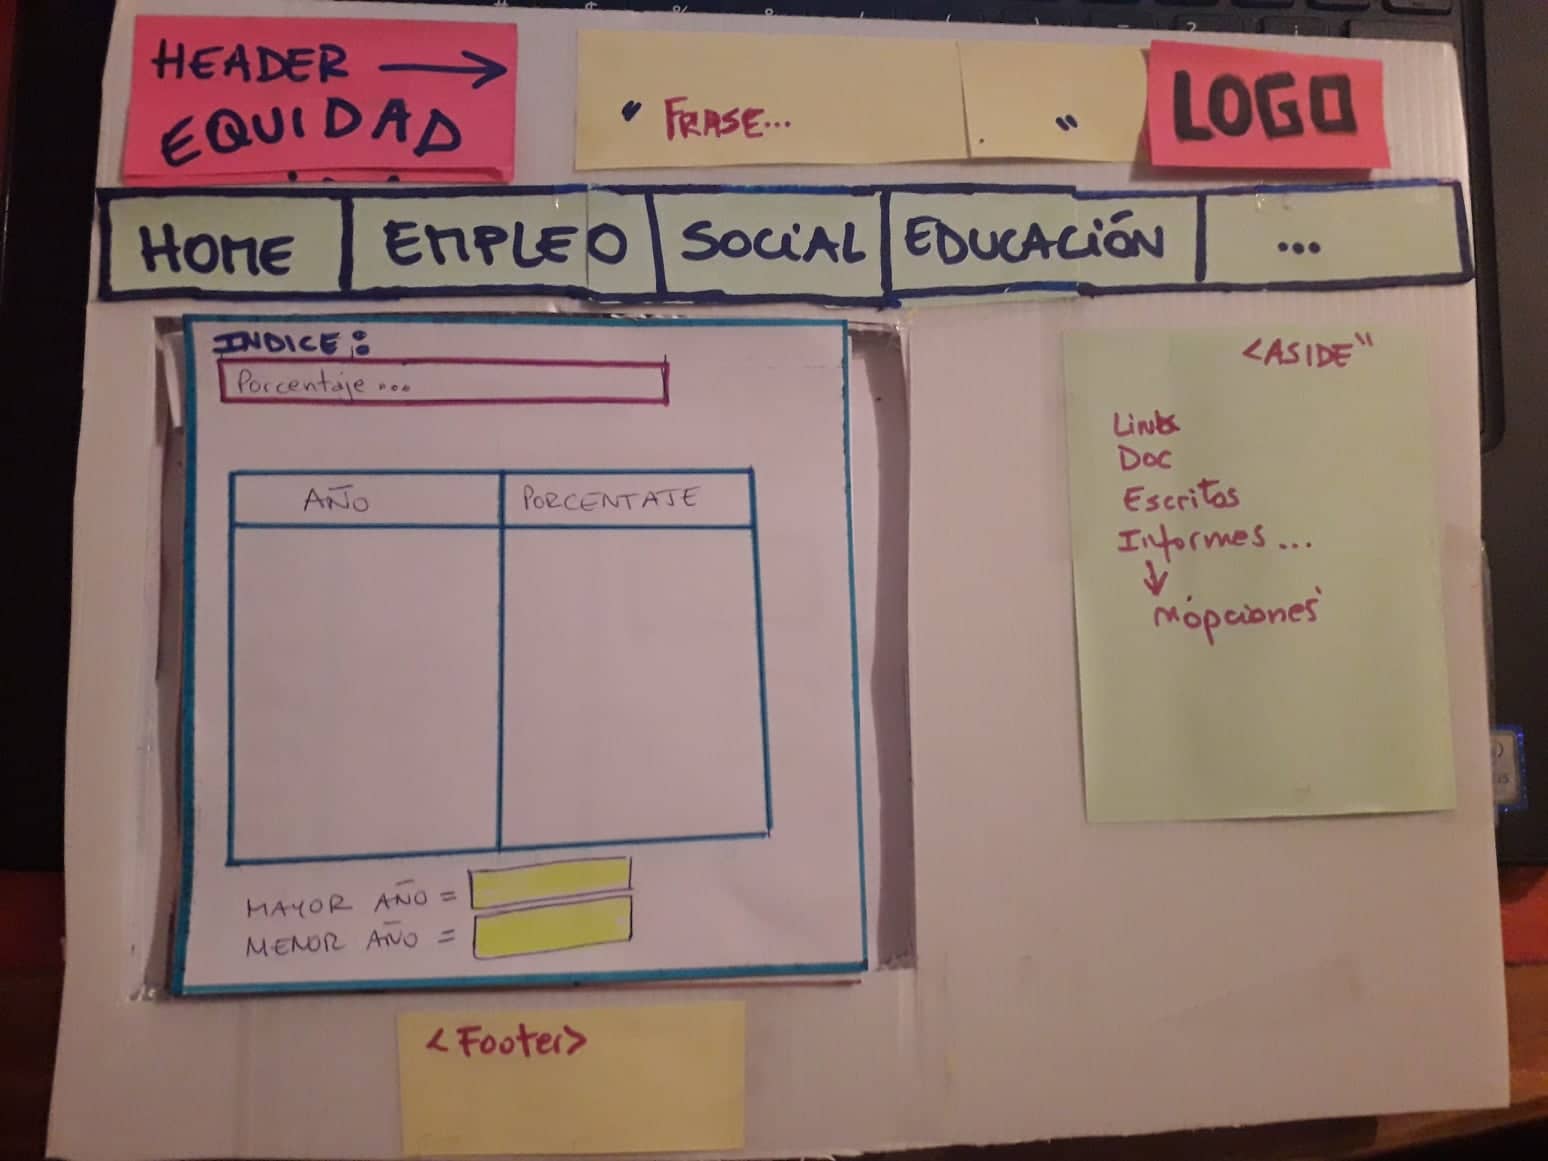 HEADER →
EQUIDAD
" FRASE... "
LOGO
HOME EMPLEO SOCIAL EDUCACIÓN ...
INDICE:
Porcentaje ...
AÑO PORCENTAJE
MAYOR AÑO =
MENOR AÑO =
<ASIDE"
Links
Doc
Escritos
Informes ...
↓
<Footer>